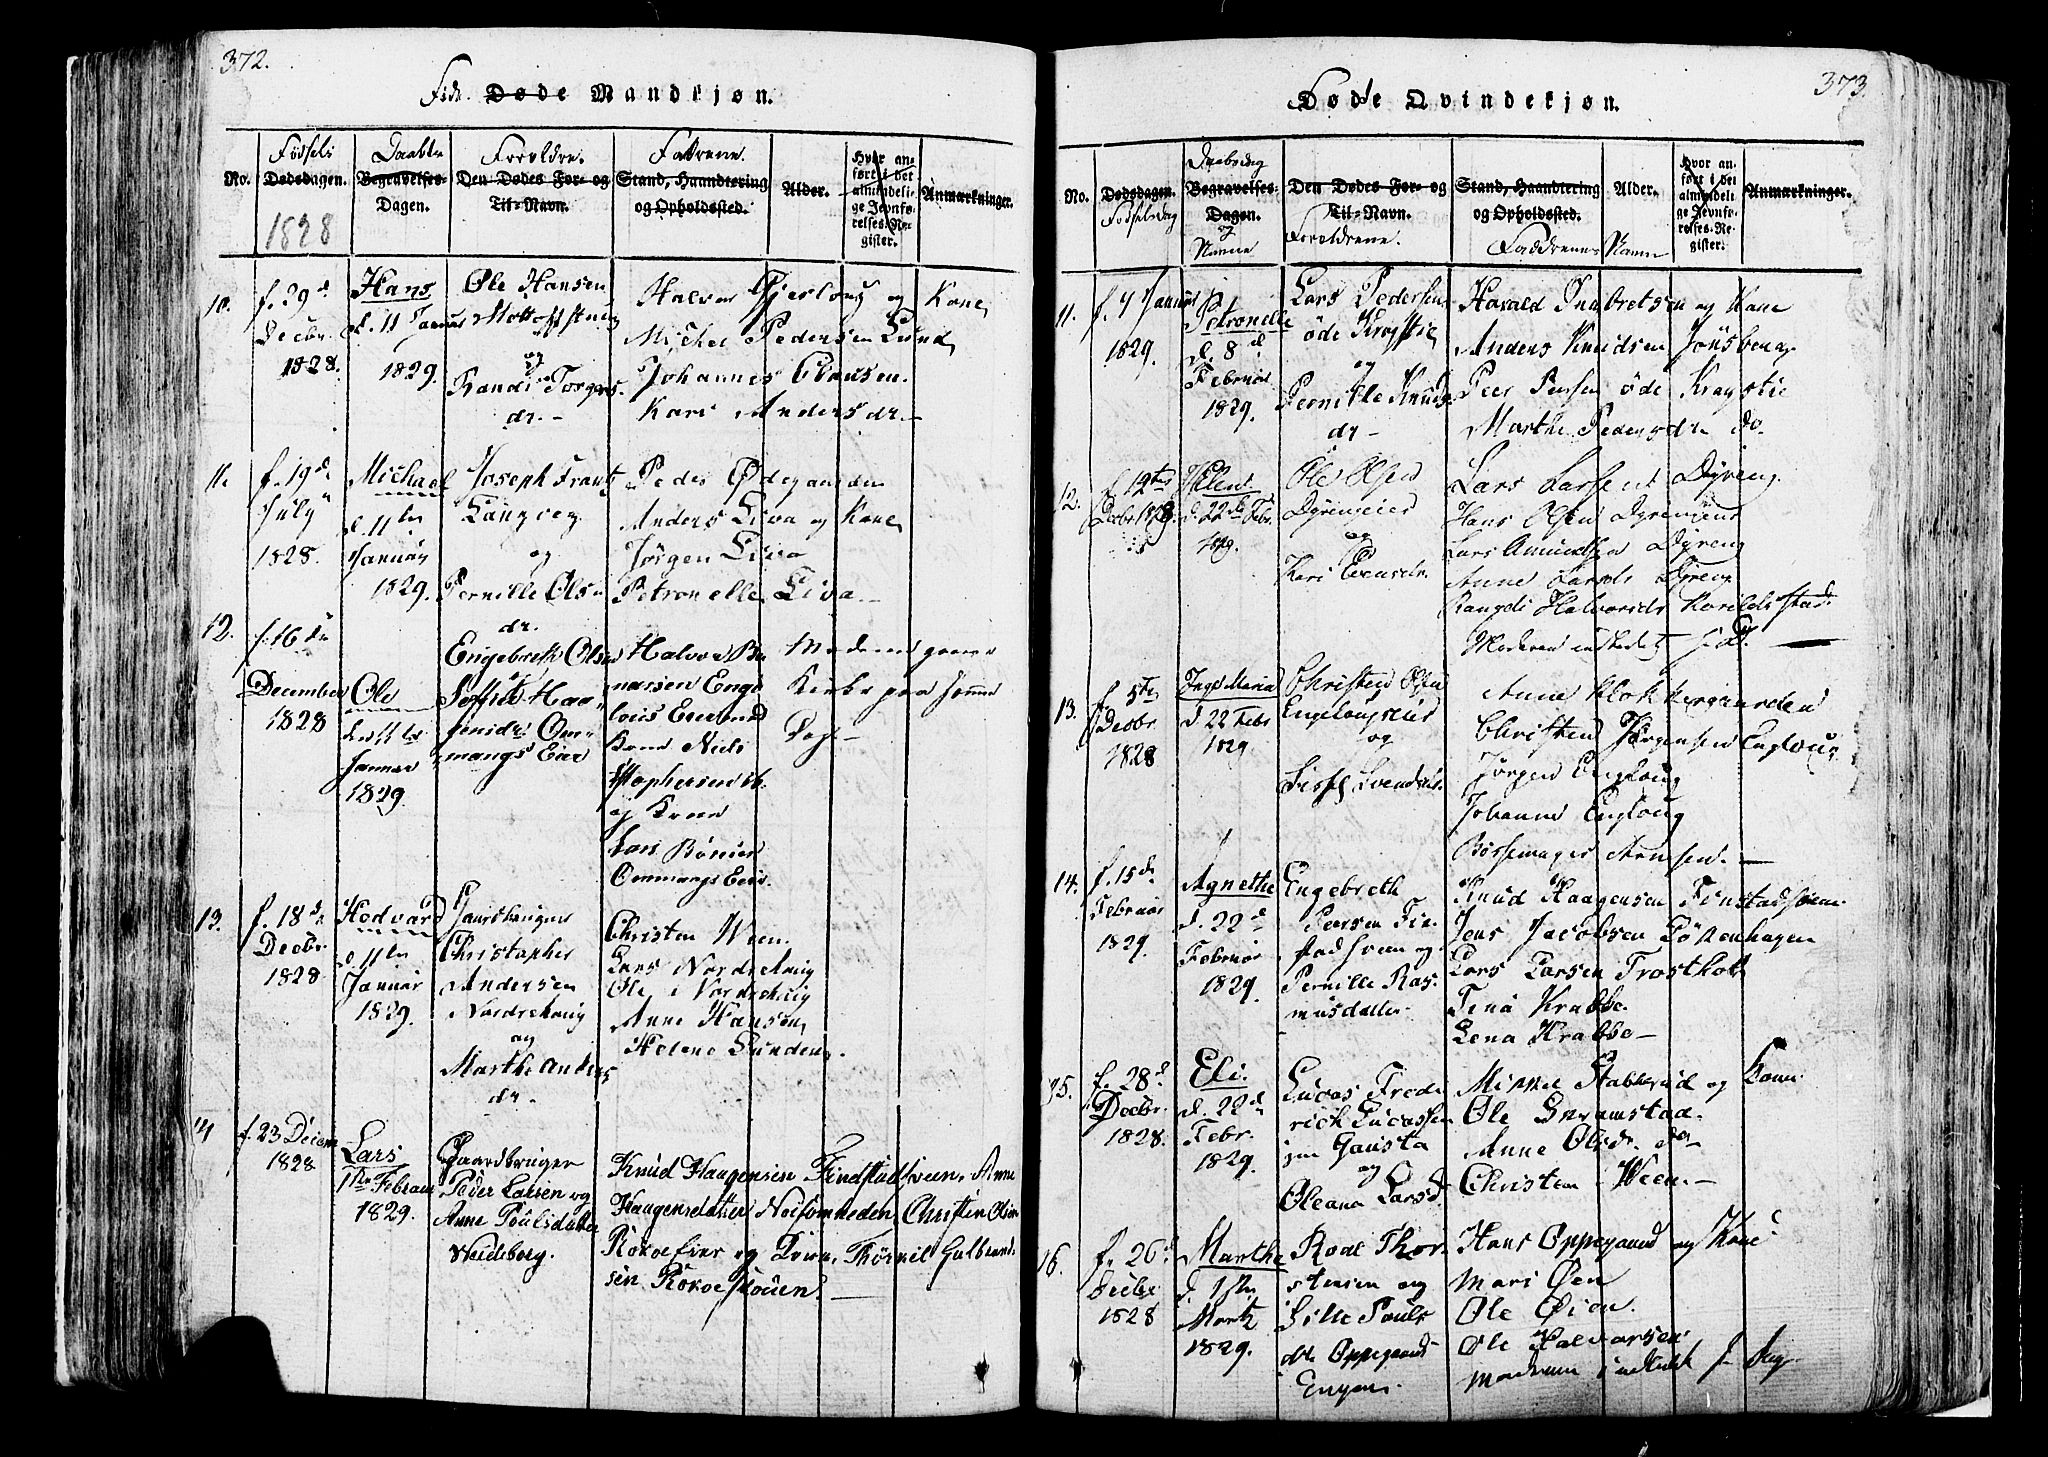 372.
Fød. Døde Mandkjøn.
No.
Fødsels
Dødsdagen.
1828
Daabs
Begravelses-
Dagen.
Forældre.
Den Dødes For- og
Til-Navn.
Fadrene.
Stand, Haandtering
og Opholdssted.
Alder.
Hvor an-
ført i det
almindeli-
ge Jevnfø-
relses-Re-
gister.
Anmærkninger.
10.
f. 29d
Decbr.
1828.
Hans
d. 11 Januar
1829.
Ole Hansen
og
Randi Torgers
dr. –
Halvor Gjerloug og Kone
Michel Pedersen Lund
Johannes Clausen.
Kari Andersdr. –
11.
f. 19d.
July
1828.
Michael
d. 11te
Januar
1829.
Joseph Frantz
Langveg
og
Pernille Ols
dr.
Peder Ødegaarden
Anders Liva og Kone
Jørgen Liva
Petronelle Liva. –
12.
f. 16de
December
1828
Ole
den 11te
Januar
1829.
Engebreth Olsen
Ommangs Eier
Halvor
Kone Niels
og Kone
Lars
Ommangs Eier.
Moderen
Kirke paa samme
Dag –
13.
f. 18de
Decbr.
1828.
Hedvard
d. 11te
Januar
1829.
Gaardbruger
Christopher
Andersen
Nordrehoug
og
Marthe Anders
dr. –
Christen Ween.
Lars Nordrehoug
Ole Nordrehoug
Anne Hansen
Helene Lunden.
14
f. 23 Decem
1828
Lars
1te Februar
1829.
Gaardbruger
Peder Larsen og
Anne Poulsdatter
Skidsborg.
Knud Haagensen Findstadsveen, Anne
Haagensdatter Christen Olsen
Rokoeier og Thorvel Gulbrand-
sen Rokoe
373.
Døde Qvindekjøn.
No.
Dødsdagen.
Fødselsdag
Daabsdag
Begravelses-
Dagen.
og
Navne
Den Dødes For- og
Til-Navn.
Forældrene.
Stand, Haandtering
og Opholdssted.
Faddrenes Navne
Alder.
Hvor an-
ført i det
almindeli-
ge Jevnfø-
relses-Re-
gister.
Anmærkninger.
11.
f. 7 Januar
1829.
Petronelle
d. 8d
Februar
1829.
Lars Pedersen
øde Kragstie
og
Pernille Knuds
dr –
Harald Ingbretsen og Kone
Anders Knudsen Jønsberg
Peer Persen øde Kragstie
Marthe Pedersdr do.
12.
f. 12te
Decbr 1828.
Helene
d. 22de Febr.
1829.
Ole Olsen
Dyrenseier
og
Kari Evensdr.
Lars Larsen Dyreng
Hans Olsen
Lars Amundsen Dyreng
Anne Larsdr Dyreng
Rangdi Halvorsdr
Moderen indledet s. D.
13.
f. 5te
Decbr
1828
Inge Maria
d 22 Febr
1829
Christen Olsen
Engelougseier
og
Siss Svendsdr.
Anne Klokkergaarden
Christen Jørgensen Engloug
Jørgen Engloug
Johanne Engloug
Bøssemager Arnesen. –
14.
f. 15de
Februar
1829.
Agnethe
d. 22d
Februar
1829.
Engebreth
Persen Fin-
stadsveen og
Pernille Ras-
musdatter
Knud Haagensen Finstadsveen
Jens Jacobsen Løkenhagen
Lars Larsen Trostholt
Tena Krabbe.
Lena Krabbe –
15.
f. 28d
Decbr.
1828.
Eli.
d. 22d
Febr.
1829.
Lucas Frede
rick Lucassen
Gausta
og
Oleana Larsd.
Mikkel Stabberud og Kone
Ole Sneramstad.
Anne Olsdr do
Christen Ween. –
16.
f. 26d
Decbr
1828
Marthe
d. 1te
Martz
1829.
Roal Thor-
stensen og
Sille Pouls
dtr Oppegaard
Engen.
Hans Oppegaard og Kone
Mari Øen
Ole Øien.
Ole Halvorsen
Moderen indledet s. Dag